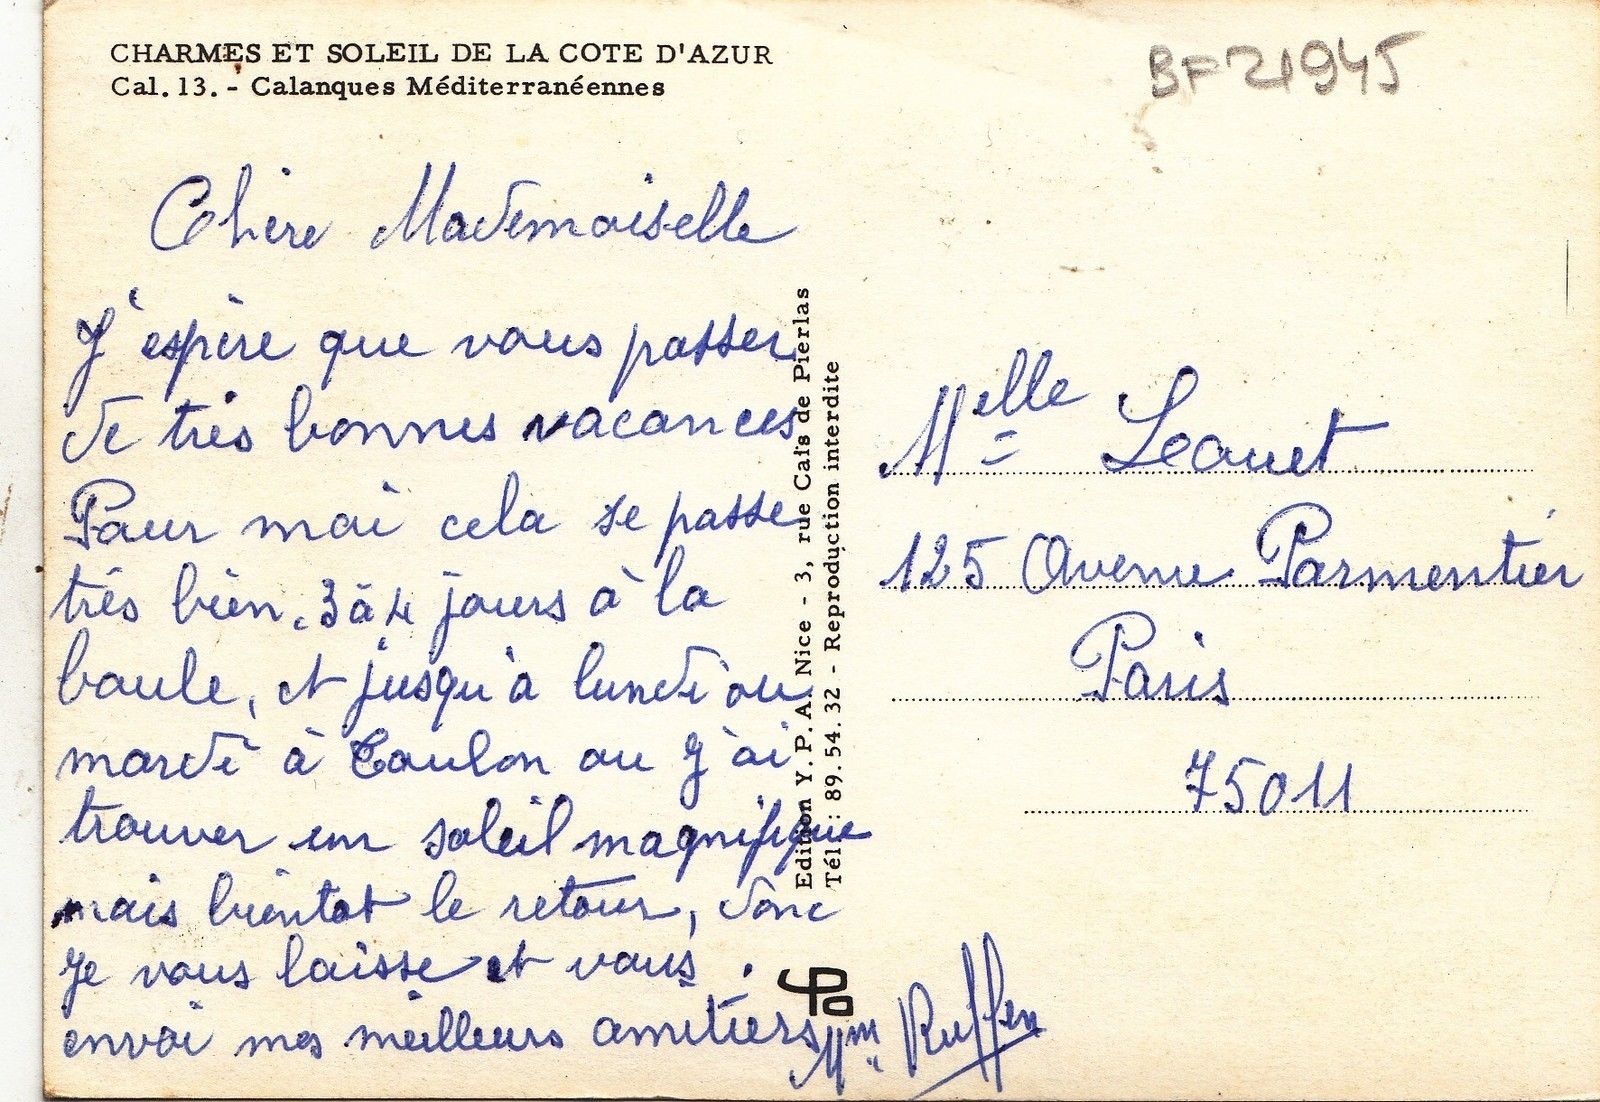 CHARMES ET SOLEIL DE LA COTE D'AZUR
Cal. 13. - Calanques Méditerranéennes
BF 21945
Chère Mademoiselle
J'espère que vous passer
de très bonnes vacances
Pour moi cela se passe
très bien. 3 à 4 jours à la
baule, et jusqu'à lundi ou
mardi à Toulon ou j'ai
trouver un soleil magnifique
mais bientot le retour, donc
je vous laisse et vous
envoi mes meilleurs amitiers
Mme
Edition Y. P. A. Nice - 3, rue Caïs de Pierlas
Tél : 89. 54. 32 - Reproduction interdite
Melle
125 Avenue Parmentier
Paris
75011